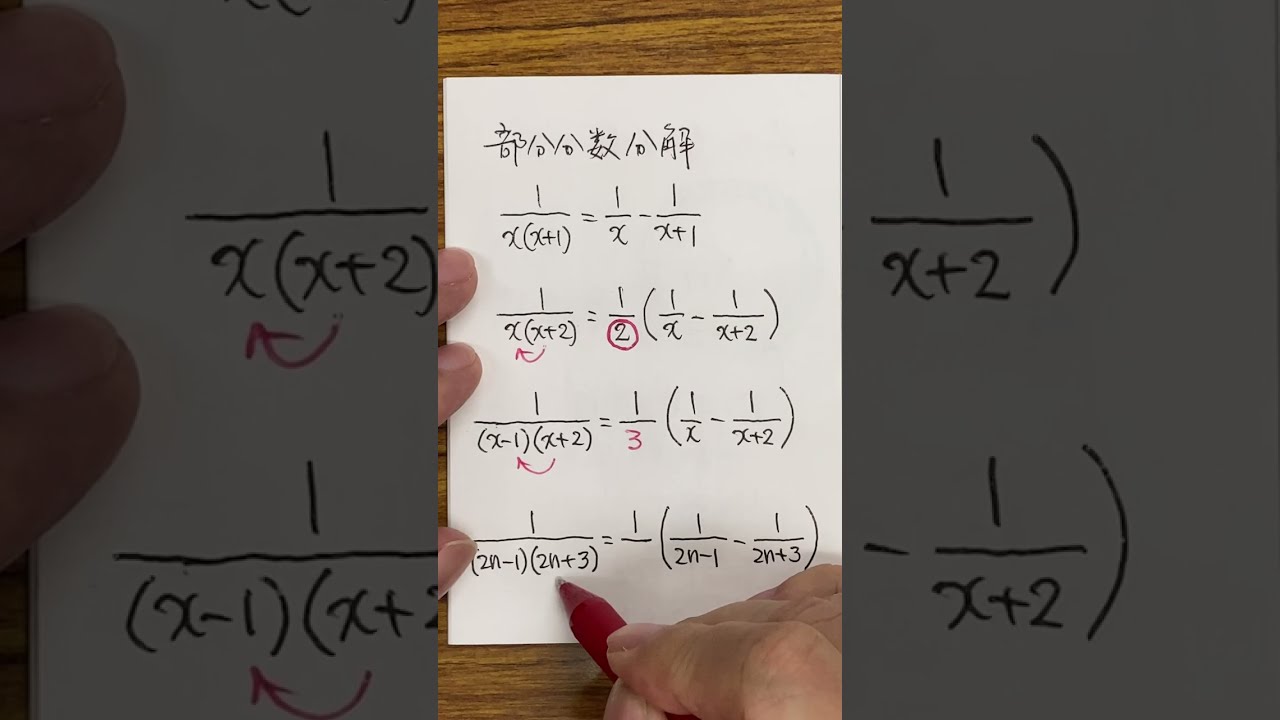 部分分数分解
1/(x(x+1)) = 1/x - 1/(x+1)
1/(x(x+2)) = 1/2 (1/x - 1/(x+2))
1/((x-1)(x+2)) = 1/3 (1/x - 1/(x+2))
1/((2n-1)(2n+3)) = 1/ (1/(2n-1) - 1/(2n+3))